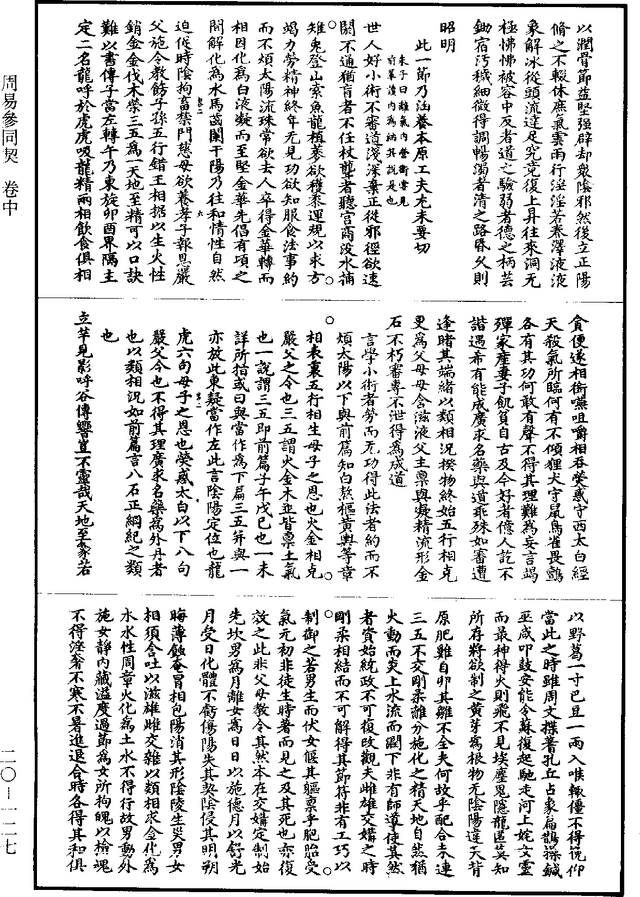 周易參同契 卷中
二〇—一二七
以潤骨節益堅强辟却衆陰邪然後立正陽
脩之不輟休庶氣雲雨行淫淫若春澤液液
象解冰從頭流達足究竟復上昇往來洞无
極怫怫被容中反者道之驗弱者德之柄芸
鋤宿汚穢細微得調暢濁者清之路昏久則
昭明
此一節乃涵養本原工夫尤未要切
世人好小術不審道淺深棄正從邪徑欲速
閼不通猶盲者不任杖聾者聽宫商没水捕
雉兔登山索魚龍植麥欲穫黍運規以求方
竭力勞精神終年无見功欲知服食法事約
而不煩太陽流珠常欲去人卒得金華轉而
相因化爲白液凝而至堅金華先倡有頃之
間解化爲水馬齒闌干陽乃往和情性自然
迫促時陰拘畜禁門慈母欲養孝子報恩嚴
父施令教飭子孫五行錯王相據以生火性
銷金金伐木榮三五爲一天地至精可以口訣
難以書傳子當左轉午乃東旋卯酉界隔主
定二名龍呼於虎虎吸龍精兩相飲食俱相
貪便遂相銜嚥咀嚼相吞熒惑守西太白經
天殺氣所臨何有不傾狸犬守鼠鳥雀畏鸇
各有其功何敢有聲不得其理難爲妄言竭
殫家產妻子飢貧自古及今好者億人訖不
諧遇希有能成廣求名藥與道乖殊如審遭
逢睹其端緒以類相況揆物終始五行相克
更爲父母母含滋液父主禀與凝精流形金
石不朽審專不泄得爲成道
言學小術者勞而无功得此法者約而不
煩太陽以下與前篇知白
相表裏五行相生母子之恩也火金相克
嚴父之令也三五謂火金木並皆禀土氣
也一説謂三五即前篇子午戊己也一未
詳所指或曰與當作爲下篇三五并與一
亦放此東凝當作左此言陰陽定位也龍
虎六句母子之恩也熒惑太白以下八句
嚴父令也不得其理廣求名藥爲外丹者
也以類相況如前篇言八石正綱紀之類
也
立竿見影呼谷傳響豈不靈哉天地至象若
以野葛一寸巴豆一兩入喉輙僵不得俛仰
當此之時雖周文揲蓍孔丘占象扁鵲操鍼
巫咸叩鼓安能令蘇復起馳走河上姹女靈
而最神得火則飛不見埃塵鬼隱龍匿莫知
所存將欲制之黄芽爲根物无陰陽違天背
原肥雞自卵其雛不全夫何故乎配合未連
三五不交剛柔離分施化之精天地自然猶
火動而炎上水流而潤下非有師導使其然
者資始統政不可復改觀夫雌雄交媾之時
剛柔相結而不可解得其節符非有工巧以
制御之若男生而伏女偃其軀禀乎胞胎受
氣元初非徒生時著而見之及其死也亦復
效之此非父母教令其然本在交媾定制始
先坎男爲月離女爲日日以施德月以舒光
月受日化體不虧傷陽失其契陰侵其明朔
晦薄蝕奄冒相包陽消其形陰陵生災男女
相須含吐以滋雄雌交雜以類相求金化爲
水水性周章火化爲土水不得行故男動外
施女静内藏溢度過節爲女所拘魄以檢魂
不得淫奢不寒不暑進退合時各得其和俱